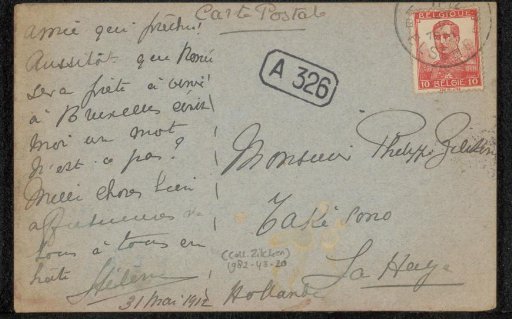 Carte Postale
amie qui prêche!
Aussitôt que René
sera prête à venir
à Bruxelles écris
moi un mot
N'est-ce pas?
Mille choses bien
affectueuses de
tous à tous en
hâte Hélène
31 Mai 1912
A 326
BELGIQUE
10 BELGIË 10
Monsieur Philippe Zilcken
Hélène Villa
La Haye
Hollande
(coll. Zilcken)
1982-43-20